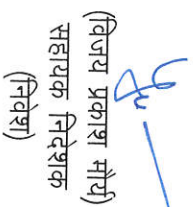 (विजय प्रकाश मौर्य)
सहायक निदेशक
(निवेश)